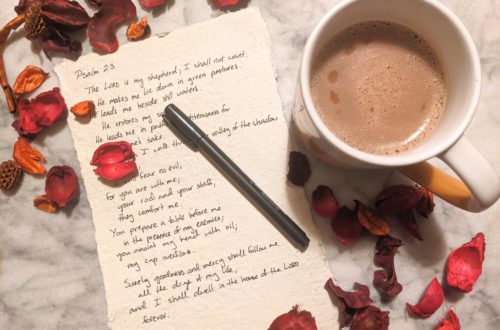 Psalm 23
The LORD is my shepherd; I shall not want
He makes me lie down in green pastures.
leads me beside still waters.
He restores my
He leads me in righteousness for
sake.
I walk valley of the shadow
fear no evil,
for you are with me;
your rod and your staff,
they comfort me.
You prepare a table before me
in the presence of my enemies;
you anoint my head with oil;
my cup overflows.
Surely goodness and mercy shall follow me
all the days of my life,
and I shall dwell in the house of the LORD
forever.